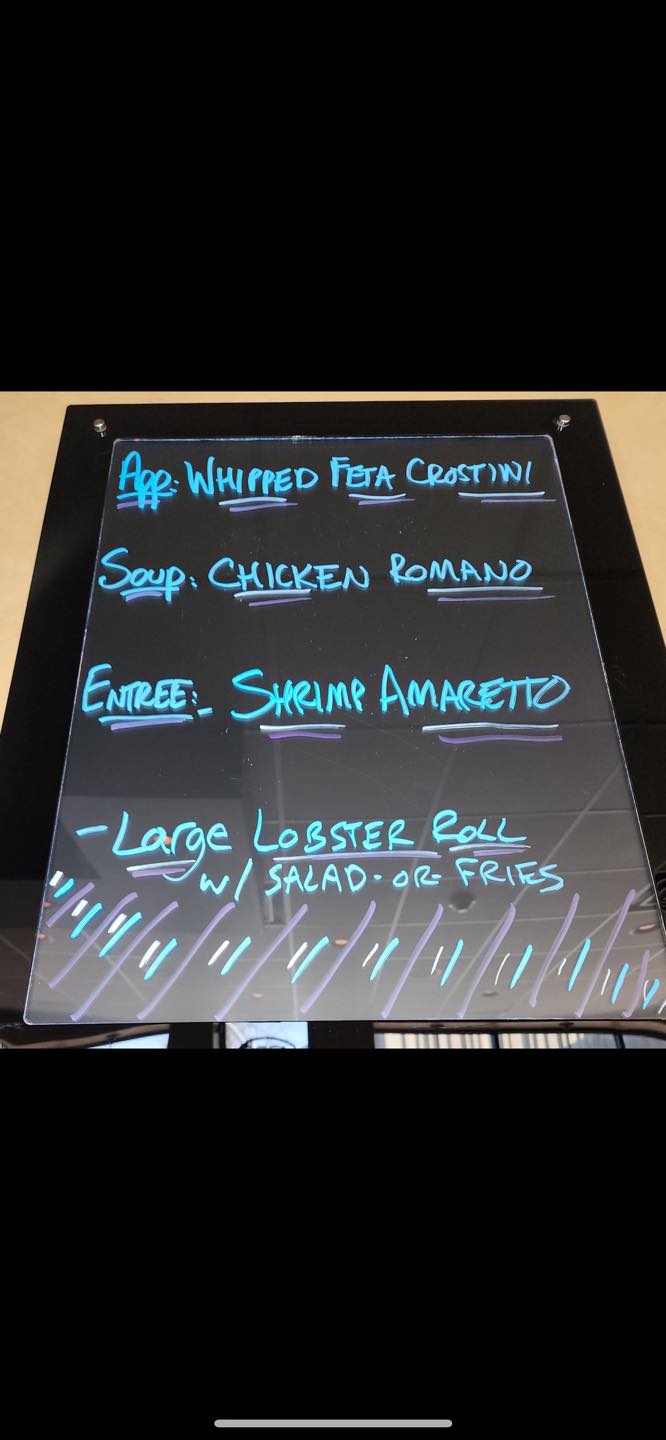 App: WHIPPED FETA CROSTINI
SOUP: CHICKEN ROMANO
ENTREE:- SHRIMP AMARETTO
- Large LOBSTER ROLL
w/ SALAD-OR-FRIES